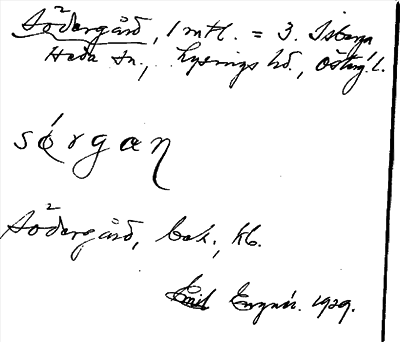 Södergård, 1 mtl. = 3. Isberga
Heda sn., Lysings hd., Östergl. l.
sǿrgaɳ
Södergård, bok., kb.
Emil 1929.